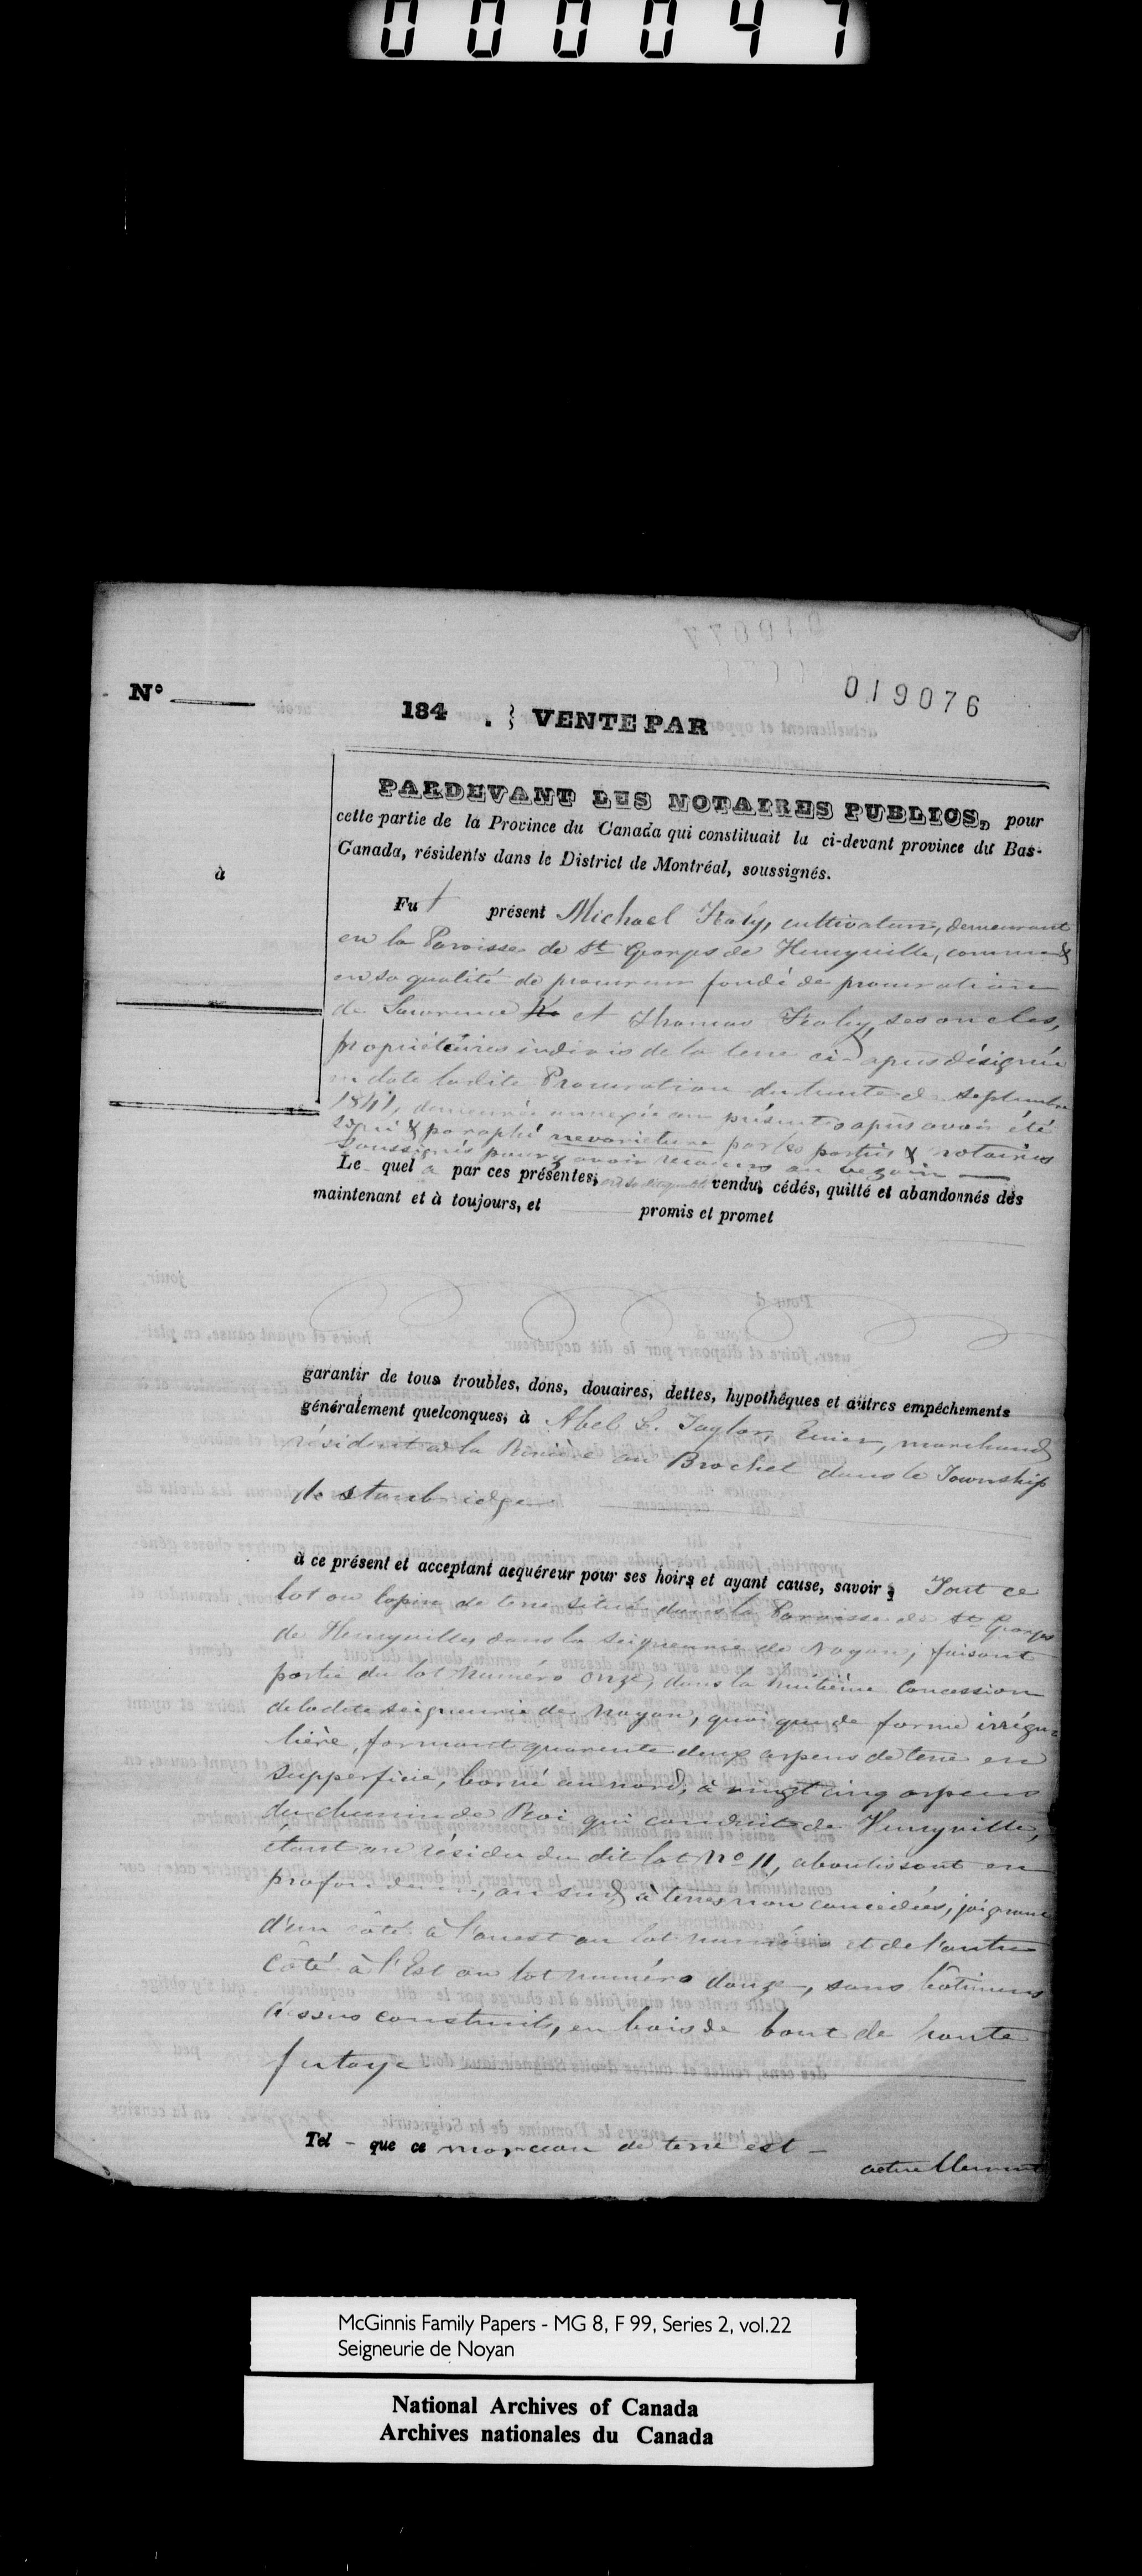 000047
019076
N°
184 . } VENTE PAR
à
PARDEVANT LES NOTAIRES PUBLICS, pour
cette partie de la Province du Canada qui constituait la ci-devant province du Bas-
Canada, résidents dans le District de Montréal, soussignés.
Fut présent Michael cultivateur, demeurant
en la Paroisse de St Georges de Henryville, comme &
en sa qualité de procureur fondé de procuration
de Lawrence et Thomas ses oncles,
propriétaires indivis de la terre ci-apres désignée
en date ladite Procuration du trente de septembre
1841, demeurée annexée aux présentes apres avoir été
signé & paraphé nevarietur par les parties & notaires
soussignés pour y avoir recours au besoin
Le quel a par ces présentes, vendu, cédés, quitté et abandonnés dès
maintenant et à toujours, et promis et promet
garantir de tous troubles, dons, douaires, dettes, hypothêques et autres empêchements
généralement quelconques, à Abel L. Taylor, Ecuier, marchand
résident à la Rivière au Brochet dans le Township
de Stanbridge
à ce présent et acceptant acquéreur pour ses hoirs et ayant cause, savoir; Tout ce
lot ou lopin de terre situé dans la Paroisse de St Georges
de Henryville, dans la seigneurie de Noyan, faisant
partie du lot numéro onze, dans la huitième Concession
de la dite seigneurie de Noyan, quoique de forme irrégu-
lière, formant quarente deux arpens de terre en
supperficie, borné au nord, à vingt cinq arpens
du chemin de Roi qui conduit de Henryville,
étant au résidu du dit lot No 11, aboutissant en
profondeur, au sud, à terres non concédées, joignant
d'un côté à l'ouest au lot numéro et de l'autre
côté à l'Est au lot numéro douze, sans bâtimens
dessus construits, en bois de bout de haute
futaye
Tel - que ce morceau de terre est -
actuellement
McGinnis Family Papers - MG 8, F 99, Series 2, vol.22
Seigneurie de Noyan
National Archives of Canada
Archives nationales du Canada